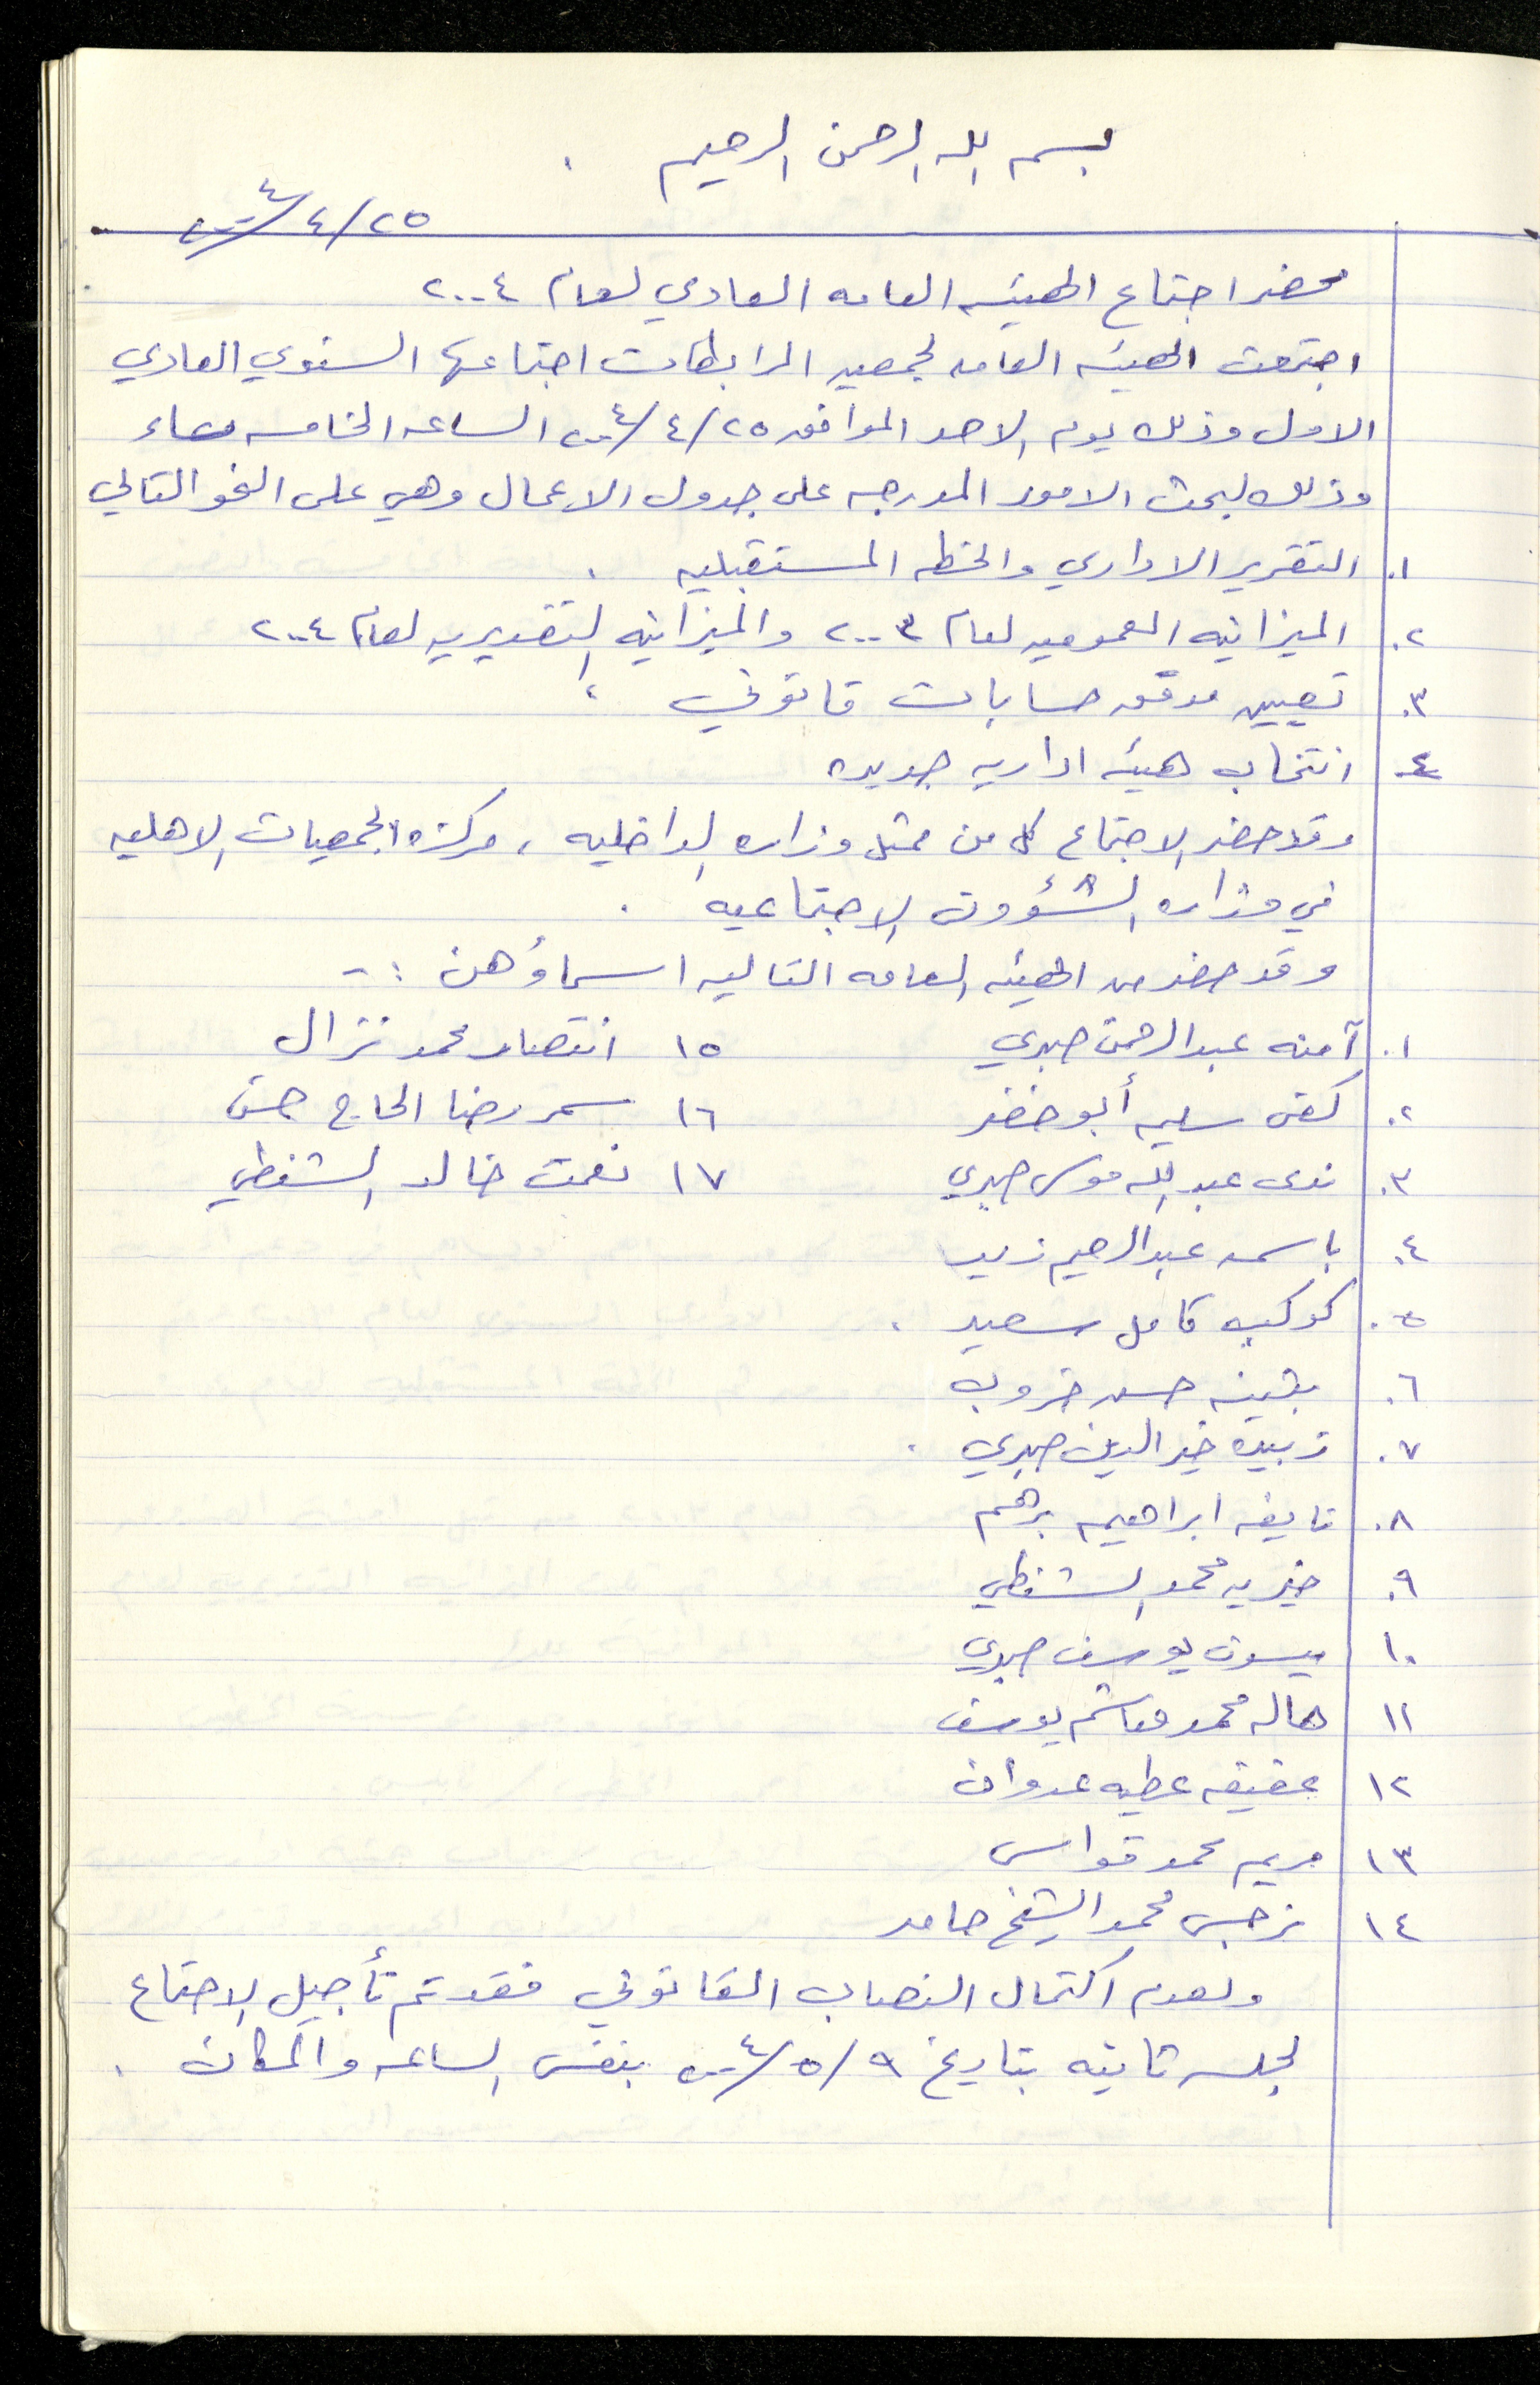 بسم الله الرحمن الرحيم .
٢٥/٤/٢٠٠٤
محضر اجتماع الهيئه العامه العادي لعام ٢٠٠٤
اجتمعت الهيئه العامه لجمعيه المرابطات اجتماعها السنوي العادي
الاول وذلك يوم الاحد الموافق ٢٥/٤/٢٠٠٤ الساعه الخامسه مساء
وذلك لبحث الامور المدرجه على جدول الاعمال وهي على النحو التالي
١. التقرير الاداري والخطه المستقبليه .
٢. الميزانيه العموميه لعام ٢٠٠٣ والميزانيه التقديريه لعام ٢٠٠٤
٣. تعيين مدقق حسابات قانوني .
٤. انتخاب هيئه اداريه جديده
وقد حضر الاجتماع كل من ممثل وزاره الداخليه ، مركزه الجمعيات الاهليه
في وزاره الشؤون الاجتماعيه .
وقد حضر من الهيئه العامه التاليه اسماؤهن :-
١. آمنه عبدالرحمن صبري ١٥ انتصار محمد نزال
٢. كفى سليم أبو خضر ١٦ سمر رضا الحاج حسن
٣. ندى عبدالله موسى صبري ١٧ نعمت خالد الشنطي
٤. باسمه عبدالرحيم زيد
٥. كوكب كامل سعيد .
٦. بثينه حسن خروب
٧. زبيده خير الدين صبري .
٨. نايفه ابراهيم برهم
٩. خيريه محمد الشنطي
١٠ ميسون يوسف صبري
١١ هاله محمد هاشم يوسف
١٢ عفيفه عطيه عدوان
١٣ مريم محمد قواس
١٤ نرجس محمد الشيخ حامد
ولعدم اكتمال النصاب القانوني فقد تم تأجيل الاجتماع
لجلسه ثانيه بتاريخ ٩/٥/٢٠٠٤ بنفس الساعه والمكان .